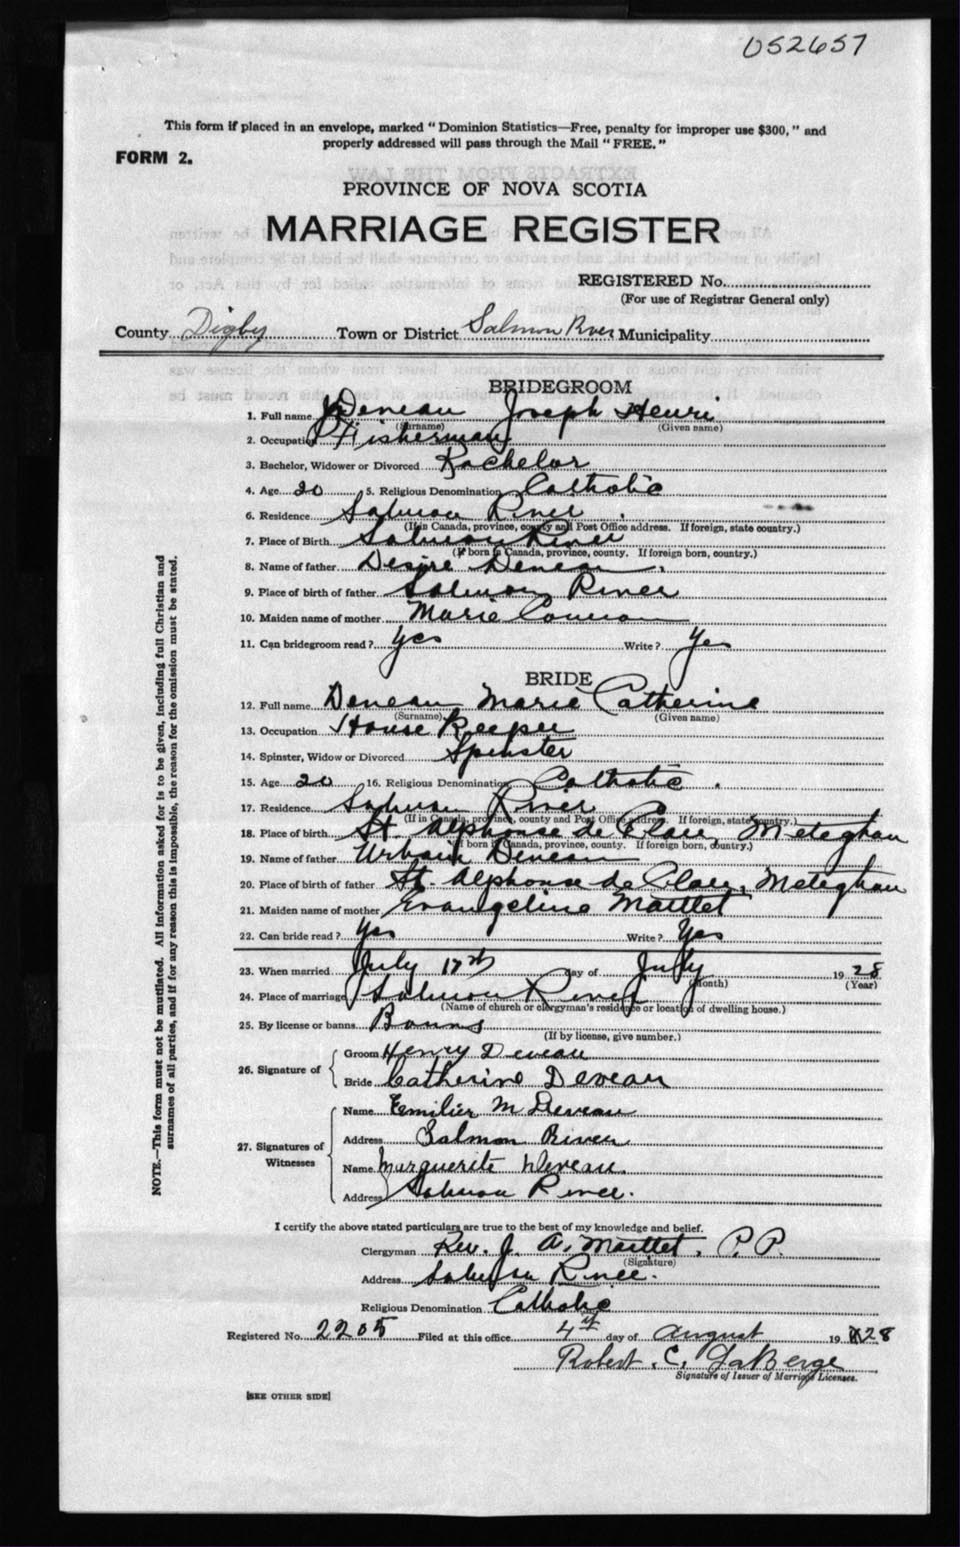 052657
This form if placed in an envelope, marked "Dominion Statistics—Free, penalty for improper use $300," and
properly addressed will pass through the Mail "FREE."
FORM 2.
PROVINCE OF NOVA SCOTIA
MARRIAGE REGISTER
REGISTERED No.
(For use of Registrar General only)
County Digby Town or District Salmon River Municipality
BRIDEGROOM
1. Full name Deveau Joseph Henri
(Surname) (Given name)
2. Occupation Fisherman
3. Bachelor, Widower or Divorced Bachelor
4. Age 20 5. Religious Denomination Catholic
6. Residence Salmon River
(If in Canada, province, county and Post Office address. If foreign, state country.)
7. Place of Birth Salmon River
(If born in Canada, province, county. If foreign born, country.)
8. Name of father Desire Deveau
9. Place of birth of father Salmon River
10. Maiden name of mother Marie Comeau
11. Can bridegroom read? Yes Write? Yes
BRIDE
12. Full name Deveau Marie Catherine
(Surname) (Given name)
13. Occupation House Keeper
14. Spinster, Widow or Divorced Spinster
15. Age 20 16. Religious Denomination Catholic
17. Residence Salmon River
(If in Canada, province, county and Post Office address. If foreign, state country.)
18. Place of birth St. Alphonse de Clare, Meteghan
(If born in Canada, province, county. If foreign born, country.)
19. Name of father Urbain Deveau
20. Place of birth of father St. Alphonse de Clare, Meteghan
21. Maiden name of mother Evangeline Maillet
22. Can bride read? Yes Write? Yes
23. When married July 17th day of July 1928
(Month) (Year)
24. Place of marriage Salmon River
(Name of church or clergyman's residence or location of dwelling house.)
25. By license or banns Banns
(If by license, give number.)
26. Signature of
Groom Henry Deveau
Bride Catherine Deveau
27. Signatures of Witnesses
Name Emilien M Deveau
Address Salmon River
Name Marguerite Deveau
Address Salmon River.
I certify the above stated particulars are true to the best of my knowledge and belief.
Clergyman Rev. J. A. Maillet, P.P.
(Signature)
Address Salmon River.
Religious Denomination Catholic
Registered No. 2205 Filed at this office 4th day of August 1928
Robert C. LaBerge
Signature of Issuer of Marriage Licenses.
[SEE OTHER SIDE]
NOTE.—This form must not be mutilated. All information asked for is to be given, including full Christian and
surnames of all parties, and if for any reason this is impossible, the reason for the omission must be stated.